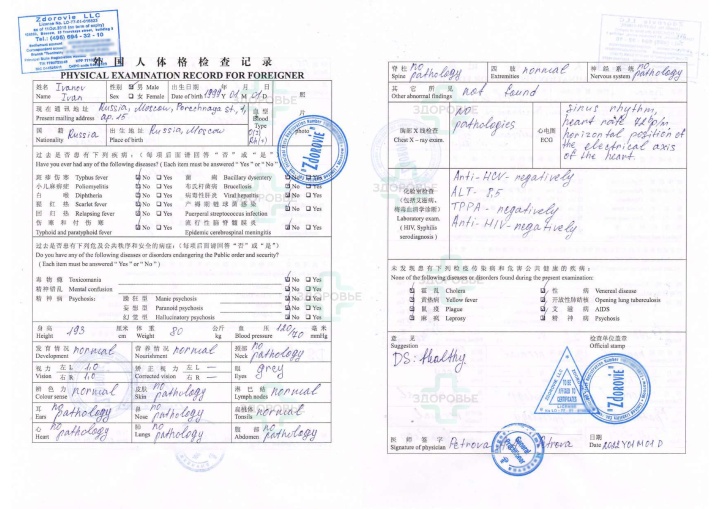 Zdorovie LLC
Tel.: (495) 694 - 32 - 10
外 国 人 体 格 检 查 记 录
PHYSICAL EXAMINATION RECORD FOR FOREIGNER
姓名 Ivanov 性别 男 Male 出生日期 年 月 日
Name Ivan Sex 女 Female Date of birth 1994 Y 01 M 01 D
现在通讯地址 Russia, Moscow, Porechnaya st., 4, 血型
Present mailing address ap. 15 Blood Type
国籍 Russia 出生地址 Russia, Moscow
Nationality Place of birth
照片
photo
过去是否患有下列疾病:(每项后面请回答“否”或“是”)
Have you ever had any of the following diseases? ( Each item must be answered “ Yes ” or “ No ” )
斑疹伤寒 Typhus fever No Yes 菌痢 Bacillary dysentery No Yes
小儿麻痹症 Poliomyelitis No Yes 布氏杆菌病 Brucellosis No Yes
白喉 Diphtheria No Yes 病毒性肝炎 Viral hepatitis No Yes
猩红热 Scarlet fever No Yes 产褥期链球菌感染
回归热 Relapsing fever No Yes Puerperal streptococcus infection No Yes
伤寒和付伤寒 流行性脑脊髓膜炎
Typhoid and paratyphoid fever No Yes Epidemic cerebrospinal meningitis No Yes
过去是否患有下列危及公共秩序和安全的病症:(每项后面请回答“否”或“是”)
Do you have any of the following diseases or disorders endangering the Public order and security?
( Each item must be answered “ Yes ” or “ No ” )
毒物瘾 Toxicomania No Yes
精神错乱 Mental confusion No Yes
精神病 Psychosis: 躁狂型 Manic psychosis No Yes
妄想型 Paranoid psychosis No Yes
幻觉型 Hallucinatory psychosis No Yes
身高 193 厘米 体重 80 公斤 血压 120/70 毫米
Height cm Weight kg Blood pressure mmHg
发育情况 normal 营养情况 normal 颈部 no
Development Nourishment Neck pathology
视力 左 L 1.0 矫正视力 左 L — 眼 grey
Vision 右 R 1.0 Corrected vision 右 R — Eyes
辨色力 normal 皮肤 no 淋巴结 normal
Colour sense Skin pathology Lymph nodes
耳 no 鼻 no 扁桃体 normal
Ears pathology Nose pathology Tonsils
心 no 肺 no 腹部 no
Heart pathology Lungs pathology Abdomen pathology
脊柱 no 四肢 normal 神经系统 no
Spine pathology Extremities Nervous system pathology
其它所见 not found
Other abnormal findings
胸部 X 线检查 no
Chest X – ray exam. pathologies
心电图
ECG
Sinus rhythm,
heart rate
horizontal position of
the electrical axis
of the heart.
化验室检查
(包括艾滋病、
梅毒血清学诊断)
Laboratory exam.
( HIV, Syphilis
serodiagnosis )
Anti-HCV - negatively
ALT - 8,5
TPPA - negatively
Anti-HIV - negatively
未发现患有下列检疫传染病和危害公共健康的疾病:
None of the following diseases or disorders found during the present examination:
霍乱 Cholera 性病 Venereal disease
黄热病 Yellow fever 开放性肺结核 Opening lung tuberculosis
鼠疫 Plague 艾滋病 AIDS
麻风 Leprosy 精神病 Psychosis
意见
Suggestion
DS: Healthy.
检查单位盖章
Official stamp
TO BE AFFIXED TO CERTIFICATES
"Zdorovie"
"Zdorovie"
医师签字 Petrova
Signature of physician
日期
Date 2022 Y 01 M 01 D
ЗДОРОВЬЕ